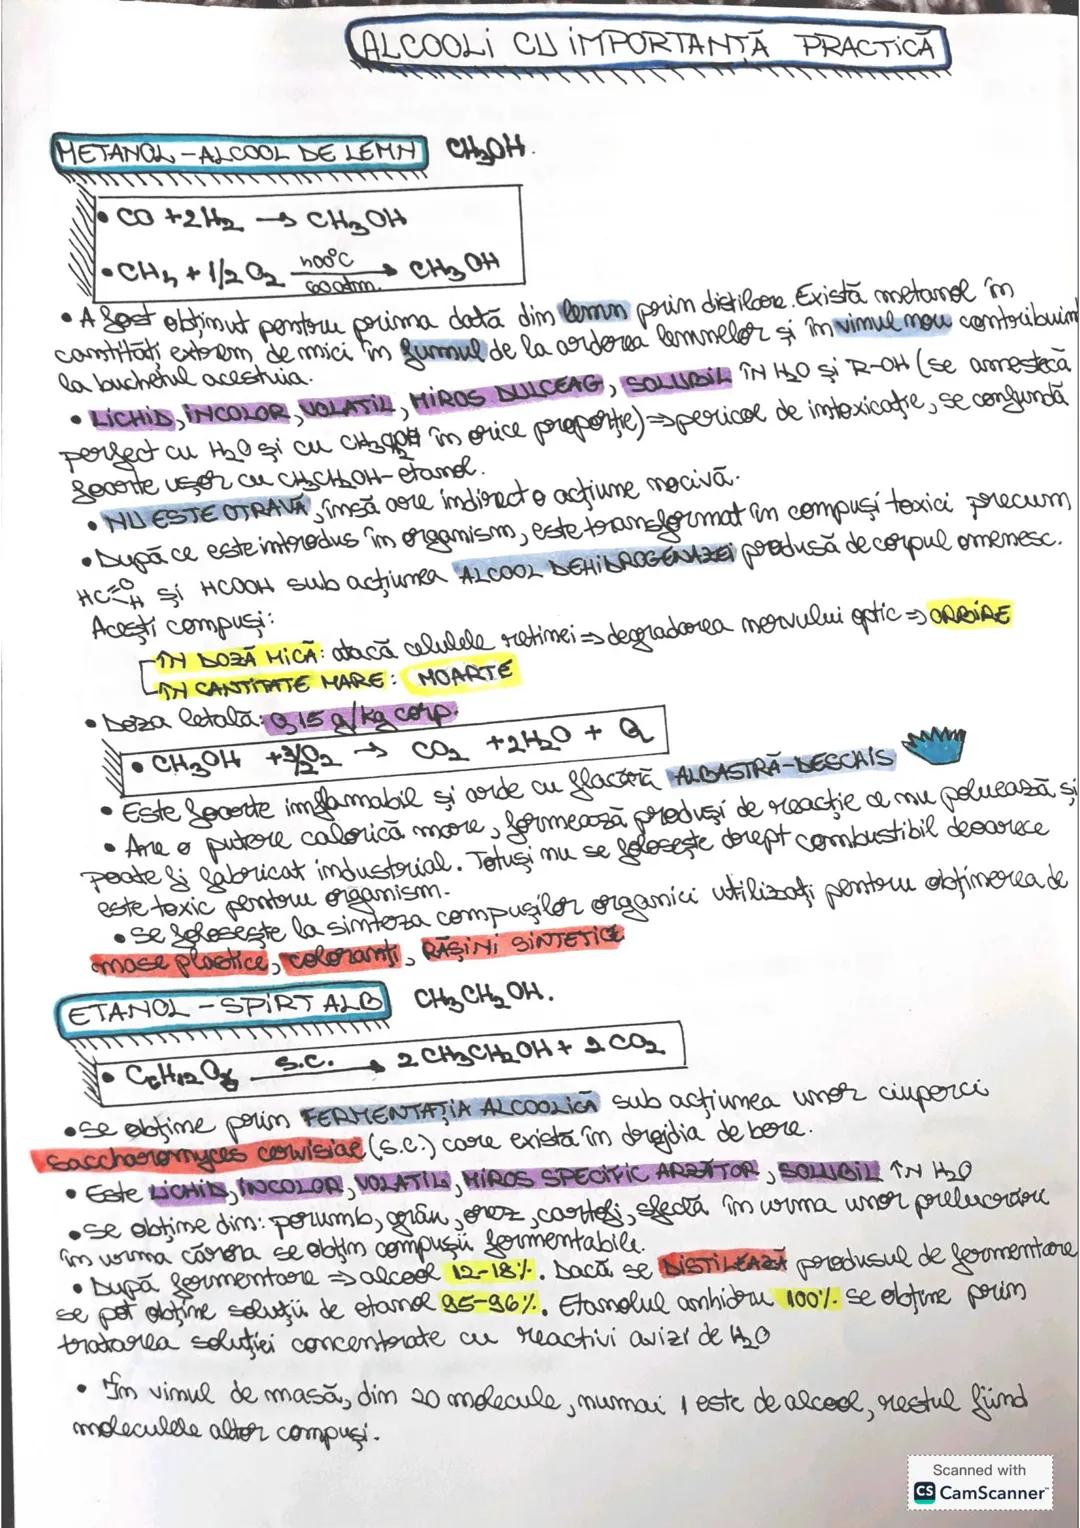 ALCOOLI CU IMPORTANȚĂ PRACTICĂ
METANOL - ALCOOL DE LEMN CH₃OH.
• CO + 2H₂ → CH₃OH
• CH₄ + 1/2 O₂ 400°C 60 atm. → CH₃OH
• A fost obținut pentru prima dată din lemn prin distilare. Există metanol în
cantități extrem de mici în fumul de la arderea lemnelor și în vinul nou contribuind
la buchetul acestuia.
• LICHID, INCOLOR, VOLATIL, MIROS DULCEAG, SOLUBIL ÎN H₂O și R-OH (se amestecă
perfect cu H₂O și cu în orice proporție) ⇒ pericol de intoxicație, se confundă
foarte ușor cu CH₃CH₂OH - etanol.
• NU ESTE OTRAVĂ, însă are indirect o acțiune nocivă.
• După ce este introdus în organism, este transformat în compuși toxici precum
HC=O H și HCOOH sub acțiunea ALCOOL DEHIDROGENAZEI produsă de corpul omenesc.
Acești compuși:
ÎN DOZĂ MICĂ: atacă celulele retinei ⇒ degradarea nervului optic ⇒ ORBIRE
ÎN CANTITATE MARE: MOARTE
• Doza letală: 0,15 g/kg corp.
• CH₃OH + 3/2 O₂ → CO₂ + 2H₂O + Q
• Este foarte inflamabil și arde cu flacără ALBASTRĂ-DESCHIS
• Are o putere calorică mare, formează produși de reacție ce nu poluează și
poate fi fabricat industrial. Totuși nu se folosește drept combustibil deoarece
este toxic pentru organism.
• se folosește la sinteza compușilor organici utilizați pentru obținerea de
mase plastice, coloranți, RĂȘINI SINTETICE
ETANOL - SPIRT ALB CH₃CH₂OH.
• C₆H₁₂O₆ s.c. → 2 CH₃CH₂OH + 2 CO₂
• se obține prin FERMENTAȚIA ALCOOLICĂ sub acțiunea unor ciuperci
saccharomyces cerwisiae (s.c.) care există în drojdia de bere.
• Este LICHID, INCOLOR, VOLATIL, MIROS SPECIFIC ARZĂTOR, SOLUBIL ÎN H₂O
• se obține din: porumb, grân, orez, cartofi, sfeclă în urma unor prelucrări
în urma cărora se obțin compuși fermentabili.
• După fermentare ⇒ alcool 12-18%. Dacă se DISTILEAZĂ produsul de fermentare
se pot obține soluții de etanol 95-96%. Etanolul anhidru 100% se obține prin
tratarea soluției concentrate cu reactivi avizi de H₂O
• În vinul de masă, din 20 molecule, numai 1 este de alcool, restul fiind
moleculele altor compuși.
Scanned with
CS CamScanner™